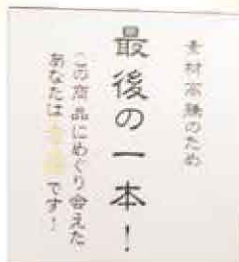 素材高騰のため
最後の一本！
この商品にめぐり会えた
あなたは です！